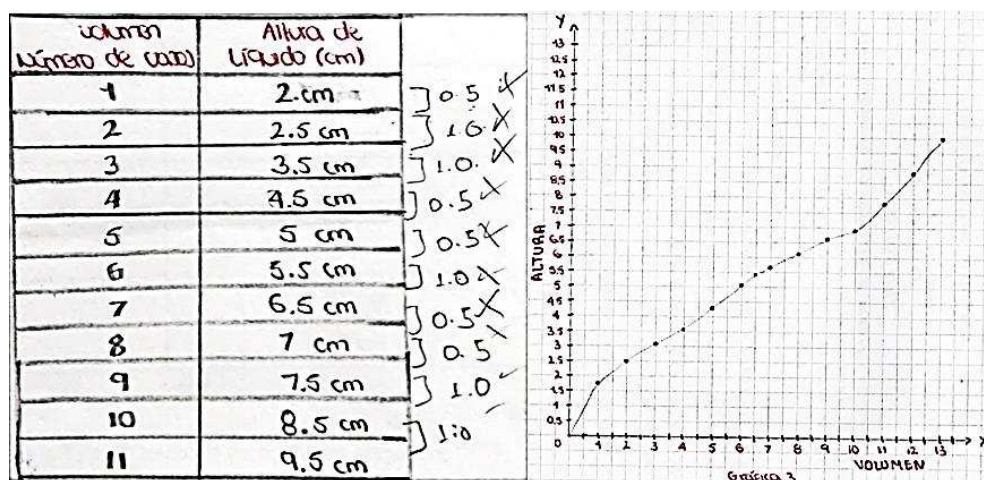 Volumen Altura de
Número de vasos Líquido (cm)
1 2 cm
0.5
2 2.5 cm
1.0
3 3.5 cm
1.0
4 4.5 cm
0.5
5 5 cm
0.5
6 5.5 cm
1.0
7 6.5 cm
0.5
8 7 cm
0.5
9 7.5 cm
1.0
10 8.5 cm
1.0
11 9.5 cm
Y
13
12.5
12
11.5
11
10.5
10
9.5
9
8.5
8
7.5
7
6.5
6
5.5
5
4.5
4
3.5
3
2.5
2
1.5
1
0.5
0
ALTURA
1 2 3 4 5 6 7 8 9 10 11 12 13 X
VOLUMEN
Gráfica 2